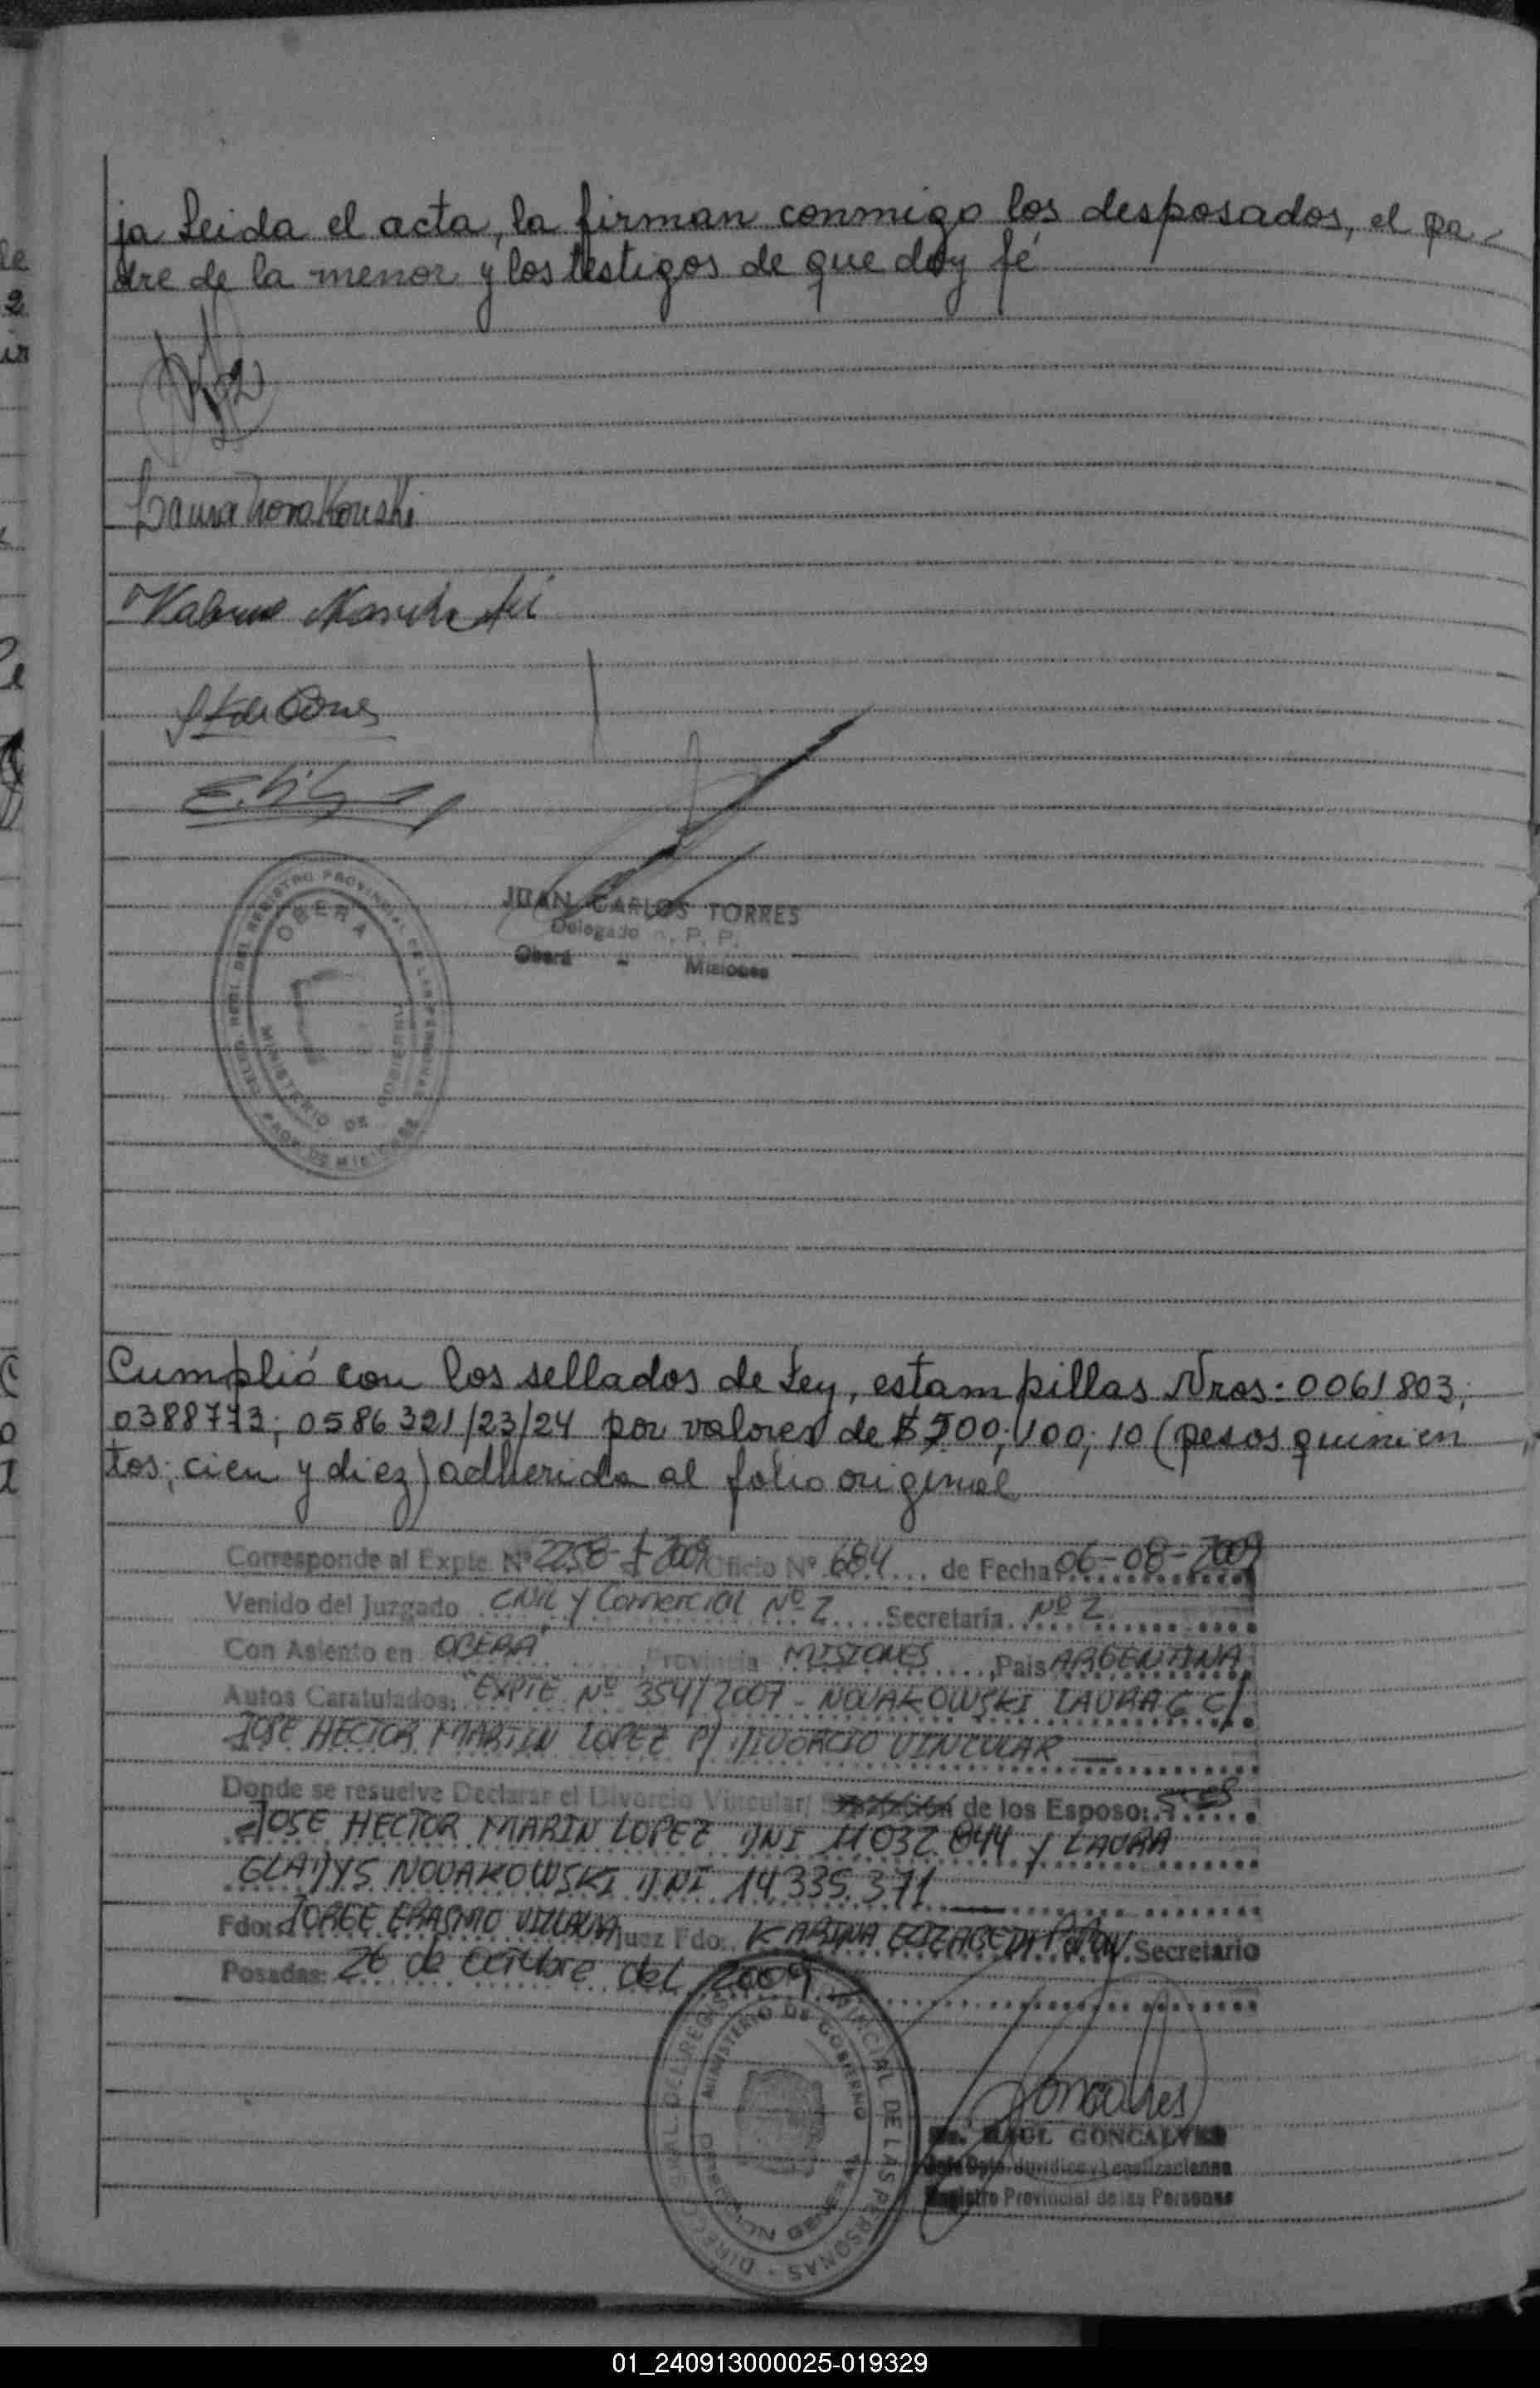 ja Leida el acta, la firman conmigo los desposados, el pa-
dre de la menor y los testigos de que doy fé
Laura Novakouski
JUAN CARLOS TORRES
Delegado R. P. P.
Oberá - Misiones
DELEG. REGI. DEL REGISTRO PROVINCIAL DE LAS PERSONAS
OBERA
MINISTERIO DE GOBIERNO
PROV. DE MISIONES
Cumplió con los sellados de Ley, estampillas Nros: 0061803;
0388773; 0586321/23/24 por valores de $500; 100; 10 (pesos quinien
tos; cien y diez) adherida al folio original
Corresponde al Expte. Nº 2258- -2009 Oficio Nº 684 de Fecha: 06-08-2009
Venido del Juzgado Civil y Comercial Nº 2 Secretaría Nº 2
Con Asiento en OBERA, Provincia MISIONES, Pais ARGENTINA
Autos Caratulados: "EXPTE Nº 354/2007 - NOVAKOWSKI LAURA G C/
JOSE HECTOR MARTIN LOPEZ P/ DIVORCIO VINCULAR
Donde se resuelve Declarar el Divorcio Vincular/ de los Esposo: Sres
JOSE HECTOR MARIN LOPEZ DNI 11032.844 y LAURA
GLADYS NOVAKOWSKI DNI 14.335.371
Fdo: JORGE ERASMO VILLALVA Juez Fdo: KARINA ELIZABETH Secretario
Posadas: 26 de octubre del 2009
DIRECC. GRAL. DEL REGISTRO PROVINCIAL DE LAS PERSONAS
MINISTERIO DE GOBIERNO
DIRECCION GENERAL
Goncalves
Dr. RAUL GONCALVES
Jefe Dpto. Jurídico y Legalizaciones
Registro Provincial de las Personas
01_240913000025-019329